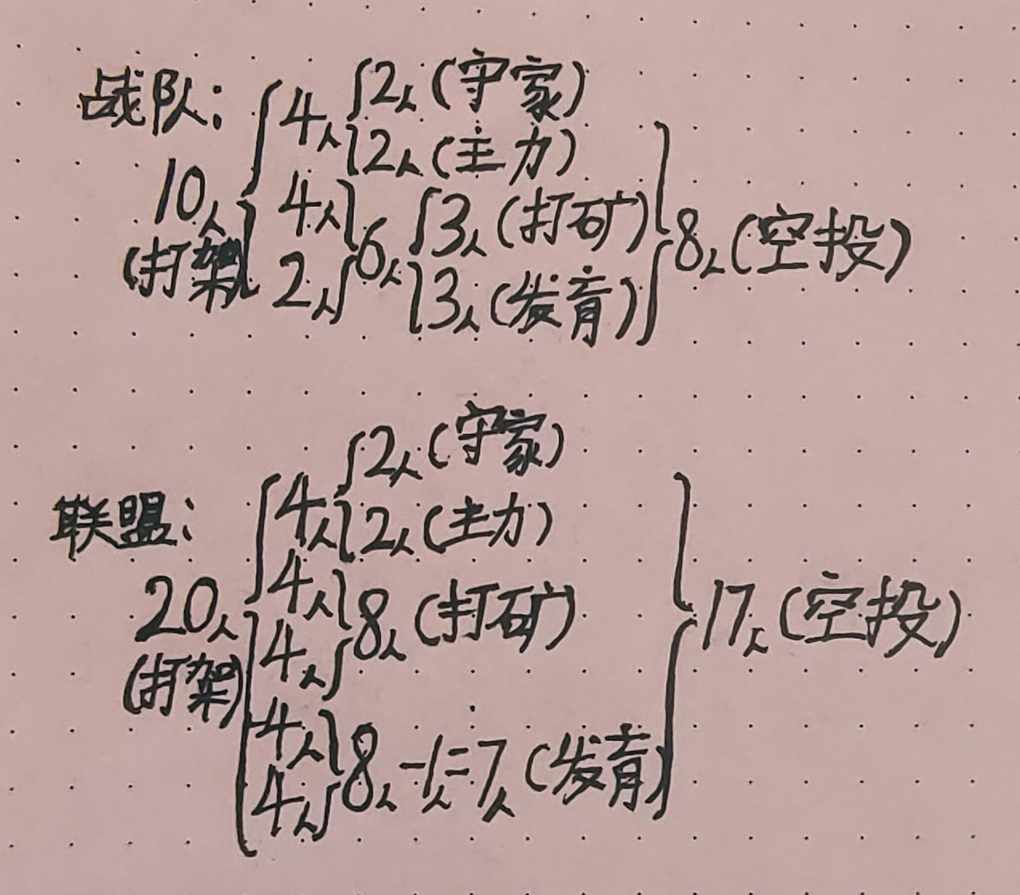 战队:
4人 2人(守家)
2人(主力)
10人 4人 6人 3人(打矿) 8人(空投)
(打架) 2人 3人(发育)
2人(守家)
联盟: 4人 2人(主力)
20人 4人 8人(打矿) 17人(空投)
(打架) 4人
4人 8人-1人=7人(发育)
4人